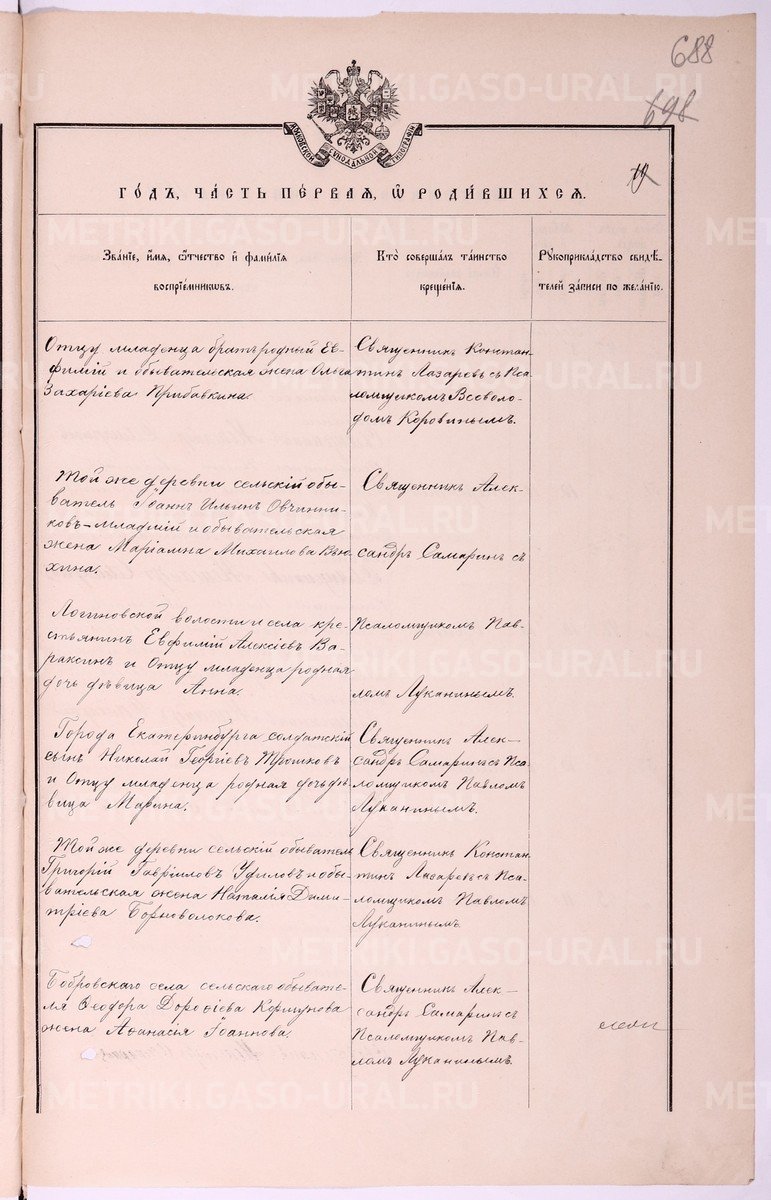 688
698
19
МОСКОВСКОЙ СѴНОДАЛЬНОЙ ТИПОГРАФІИ
ГО́ДЪ, ЧА́СТЬ ПЕ́РВАЯ, Ѽ РОДИ́ВШИХСЯ.
Зва́нїе, и́мѧ, ѻ҆́тчество и҆ фами́лїѧ
воспрїе́мникѡвъ.
Кто̀ соверша́лъ та́инство
креще́нїѧ.
Рꙋкоприкла́дство свидѣ́-
телей за́писи по жела́нїю.
Отцу младенца братъ родный Ев-
фимій и обывательская жена Ольга
Захаріева Прибавкина.
Священникъ Констан-
тинъ Лазаревъ съ Пса-
ломщикомъ Всеволо-
домъ Коровинымъ.
Той же деревни сельскій обы-
ватель Іоаннъ Ильинъ Овчинни-
ковъ-младшій и обывательская
жена Маріамна Михаилова Вью-
хина.
Священникъ Алек-
сандръ Самаринъ съ
Логиновской волости и села кре-
стьянинъ Евфимій Алексіевъ Ва-
раксинъ и Отцу младенца родная
дочь дѣвица Анна.
Псаломщикомъ Пав-
ломъ Луканинымъ.
Города Екатеринбурга солдатскій
сынъ Николай Георгіевъ Трошковъ
и Отцу младенца родная дочь дѣ-
вица Марина.
Священникъ Алек-
сандръ Самаринъ съ Пса-
ломщикомъ Павломъ
Луканинымъ.
Той же деревни сельскій обыватель
Григорій Гавріиловъ Удиловъ и обы-
вательская жена Наталія Дими-
тріева Борноволокова.
Священникъ Констан-
тинъ Лазаревъ съ Пса-
ломщикомъ Павломъ
Луканинымъ.
Бобровскаго села сельскаго обывате-
ля Ѳеодора Дороѳіева Коршунова
жена Аѳанасія Іоаннова.
Священникъ Алек-
сандръ Самаринъ съ
Псаломщикомъ Пав-
ломъ Луканинымъ.
METRIKI.GASO-URAL.RU